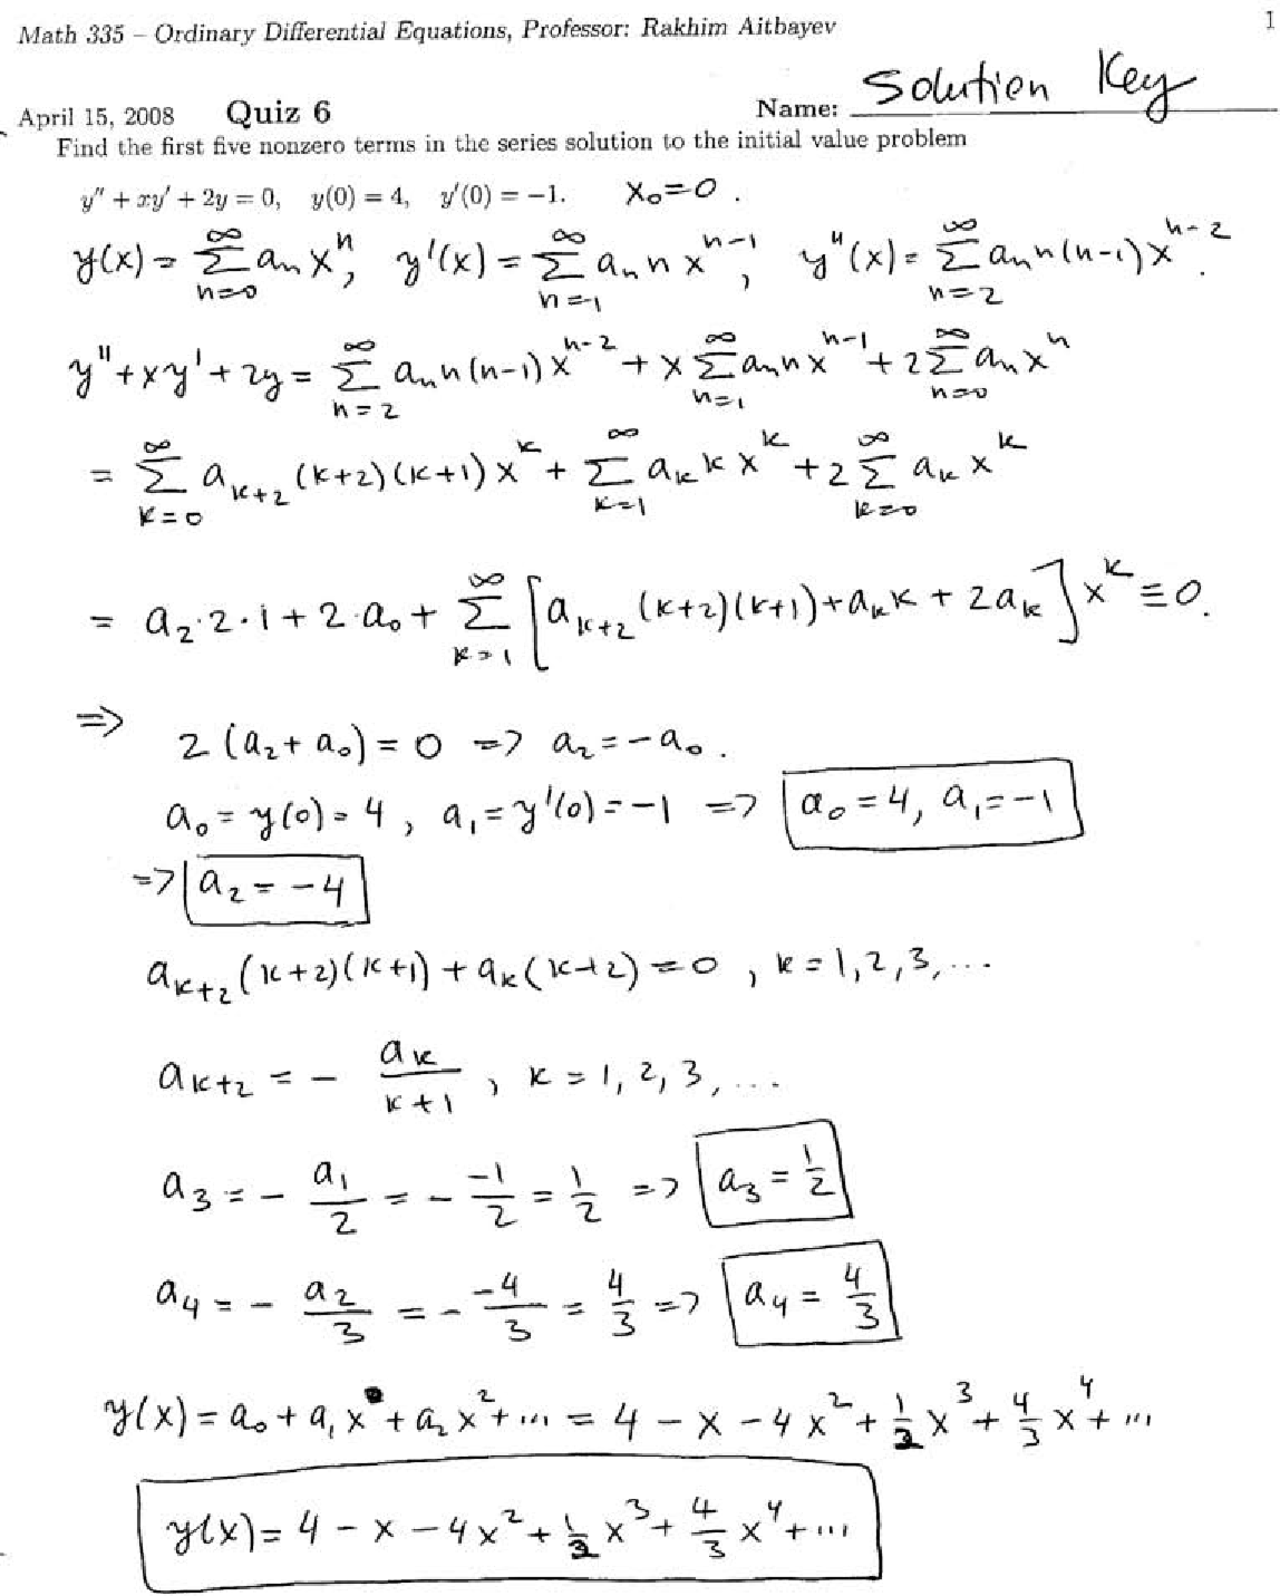 Math 335 – Ordinary Differential Equations, Professor: Rakhim Aitbayev 1
April 15, 2008 Quiz 6 Name: Solution Key
Find the first five nonzero terms in the series solution to the initial value problem
y″ + xy′ + 2y = 0, y(0) = 4, y′(0) = −1. x₀=0.
y(x) = ∑_{n=0}^{∞} aₙ xⁿ, y′(x) = ∑_{n=1}^{∞} aₙ n x^{n−1}, y″(x) = ∑_{n=2}^{∞} aₙ n(n−1) x^{n−2}.
y″+xy′+2y = ∑_{n=2}^{∞} aₙ n(n−1) x^{n−2} + x ∑_{n=1}^{∞} aₙ n x^{n−1} + 2 ∑_{n=0}^{∞} aₙ xⁿ
= ∑_{k=0}^{∞} a_{k+2} (k+2)(k+1) x^k + ∑_{k=1}^{∞} a_k k x^k + 2 ∑_{k=0}^{∞} a_k x^k
= a₂·2·1 + 2·a₀ + ∑_{k=1}^{∞} [a_{k+2} (k+2)(k+1) + a_k k + 2a_k] x^k ≡ 0.
⇒ 2(a₂+a₀) = 0 ⇒ a₂ = −a₀.
a₀ = y(0) = 4, a₁ = y′(0) = −1 ⇒ a₀ = 4, a₁ = −1
⇒ a₂ = −4
a_{k+2} (k+2)(k+1) + a_k (k+2) = 0, k = 1,2,3,...
a_{k+2} = − a_k/(k+1), k = 1, 2, 3, ...
a₃ = − a₁/2 = − −1/2 = 1/2 ⇒ a₃ = 1/2
a₄ = − a₂/3 = − −4/3 = 4/3 ⇒ a₄ = 4/3
y(x) = a₀ + a₁x + a₂x² + ... = 4 − x − 4x² + 1/2 x³ + 4/3 x⁴ + ...
y(x) = 4 − x − 4x² + 1/2 x³ + 4/3 x⁴ + ...